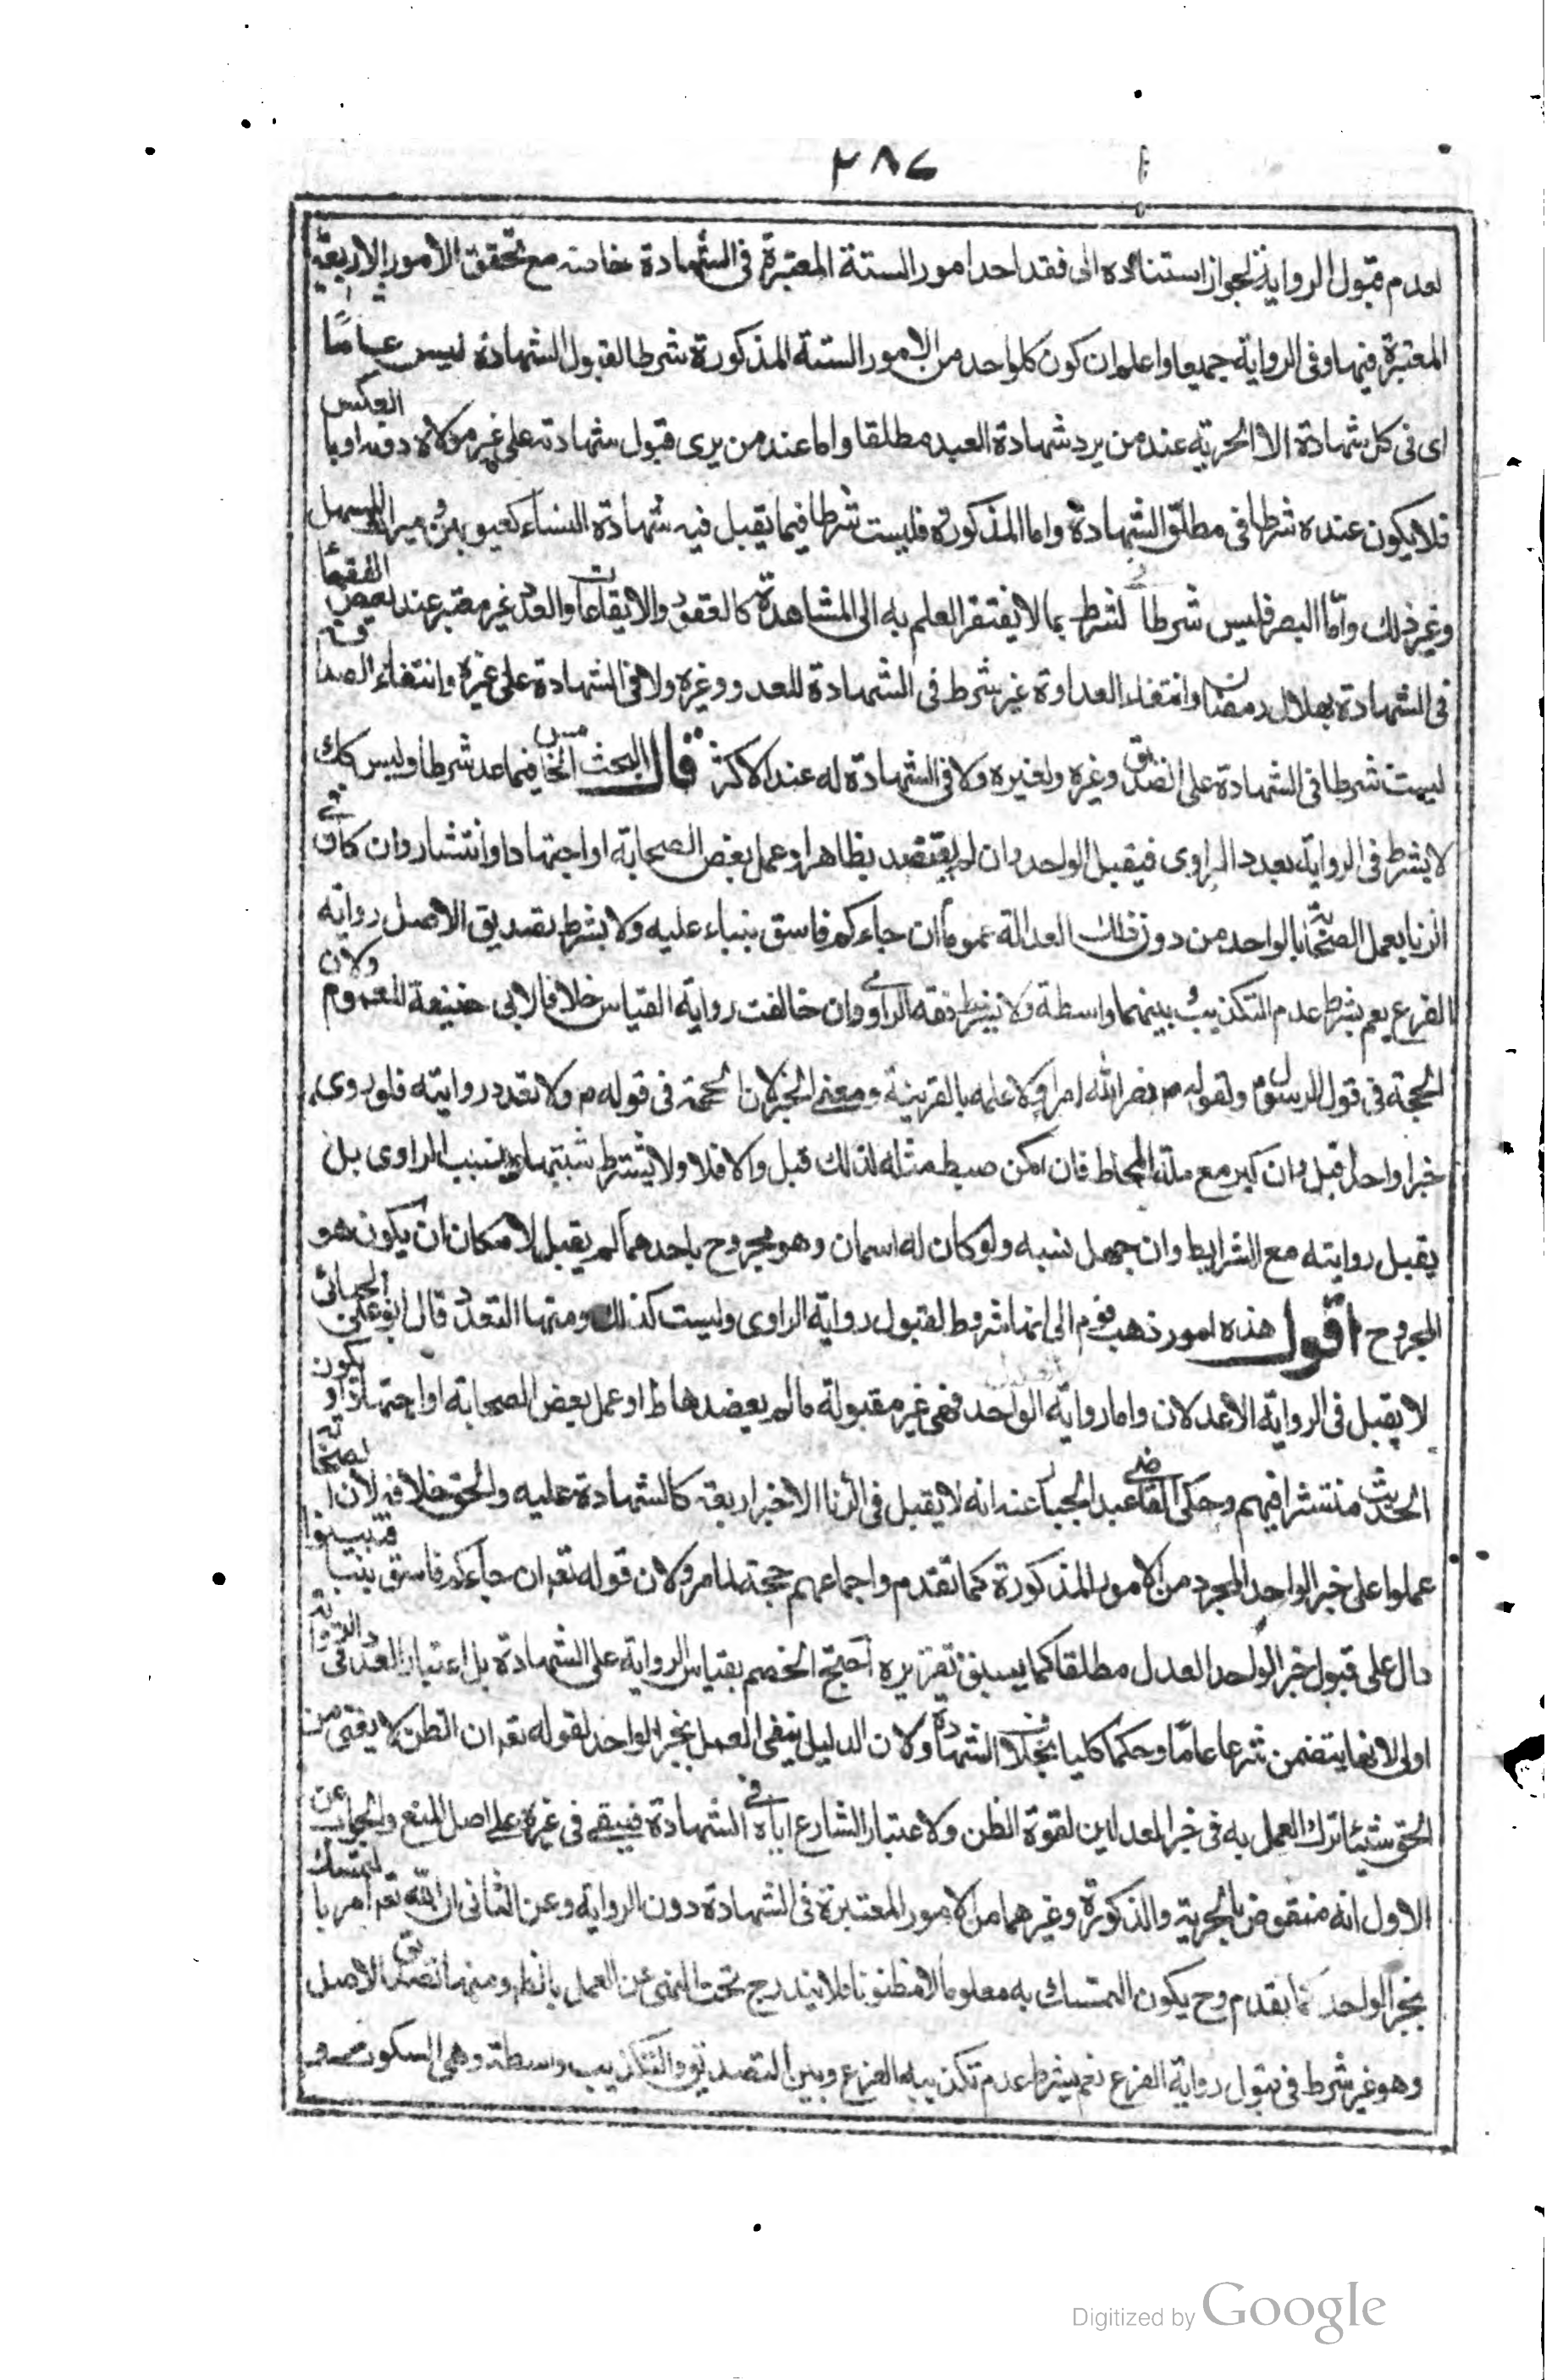 ٢٨٧
لعدم قبول الرواية لجواز استناده الى فقد احد امور الستة المعتبرة فى الشهادة خاصة مع تحقق الامور الاربعة
المعتبرة فيها وفى الرواية جميعا واعلم ان كون كلواحد من الامور الستة المذكورة شرطا لقبول الشهادة ليس عاما
اى فى كل شهادة الا الحرية عند من يرد شهادة العبد مطلقا واما عند من يرى قبول شهادته على غير مولاه دونه او بالعكس
فلا يكون عنده شرطا فى مطلق الشهادة واما المذكورة فليست شرطا فيما يقبل فيه شهادة النساء كعيوبهن وميراث المستهل
وغير ذلك واما البصر فليس شرطا لشرط بما لا يفتقر العلم به الى المشاهدة كالعقود والايقاعات والعدد غير معتبر عند بعض الفقهاء
فى الشهادة بهلال رمضان وانتفاء العداوة غير شرط فى الشهادة للعدو وغيره ولا فى الشهادة على غيره وانتفاء الصداقة
ليست شرطا فى الشهادة على الصديق وغيره ولغيره ولا فى الشهادة له عند الاكثر قال البحث الخامس فيما عد شرطا وليس كك
لا يشرط فى الرواية تعدد الراوى فيقبل الواحد وان لم يعتضد بظاهر او عمل بعض الصحابة او اجتهاد او انتشار وان كان فى
الزنا لعمل الصحابة بالواحد من دون ذلك العدالة عموم ان جاءكم فاسق بنباء عليه ولا يشرط تصديق الاصل رواية
الفرع نعم يشرط عدم التكذيب وبينهما واسطة ولا يشرط فقه الراوى وان خالفت رواية القياس خلافا لابى حنيفة للعموم ولان
الحجة فى قول الرسول ولقوله م نضر الله امرا ولا علمه بالقرينة ومعنى الخبر لان الحجة فى قوله م ولا تعدد روايته فلو روى
خبرا واحدا قبل وان كبر مع ملة المخاط فان امكن ضبط مثله لذلك قبل والا فلا ولا يشترط شبتهاره بنسب الراوى بل
يقبل روايته مع الشرايط وان جهل نسبه ولو كان له اسمان وهو مجروح باحدهما لم يقبل لامكان ان يكون هو
المجروح اقول هذه امور ذهب قوم الى انها شروط لقبول رواية الراوى وليست كذلك ومنها التعدد قال ابو على الجبائى
لا يقبل فى الرواية الا عدلان واما رواية الواحد فهى غير مقبولة ما لم يعضدها ظ او عمل بعض الصحابة او اجتهاد او يكون
الحديث منتشرا فيهم وحكى القاضى عبد الجبار عنه انه لا يقبل فى الزنا الا خبر اربعة كالشهادة عليه والحق خلافه لان الصحابة
عملوا على خبر الواحد المجرد من الامور المذكورة كما تقدم واجماعهم حجة لما مر ولان قوله تعه ان جاءكم فاسق بنبا فتبينوا
دال على قبول خبر الواحد العدل مطلقا كما يسبق تقريره احتج الخصم بقياس الرواية على الشهادة بل اعتبار العدد فى الرواية
اولى لانها يتضمن شرعا عاما وحكما كليا بخلاف الشهادة ولان الدليل ينفى العمل بخبر الواحد لقوله تعه ان الظن لا يغنى من
الحق شيئا ترك العمل به فى خبر العدلين لقوة الظن ولاعتبار الشارع اياه فى الشهادة فيبقى فى غيره على اصل المنع والجواب عن
الاول انه منقوض بالحرية والذكورة وغيرهما من الامور المعتبرة فى الشهادة دون الرواية وعن الثانى ان الله تعه امر بالتمسك
بخبر الواحد كما تقدم وح يكون التمسك به معلوما لا مظنونا فلا يندرج تحت النهى عن العمل بالظن ومنها تصديق الاصل
وهو غير شرط فى قبول رواية الفرع نعم يشرط عدم تكذيبه الفرع وبين التصديق والتكذيب واسطة وهى السكوت
Digitized by Google